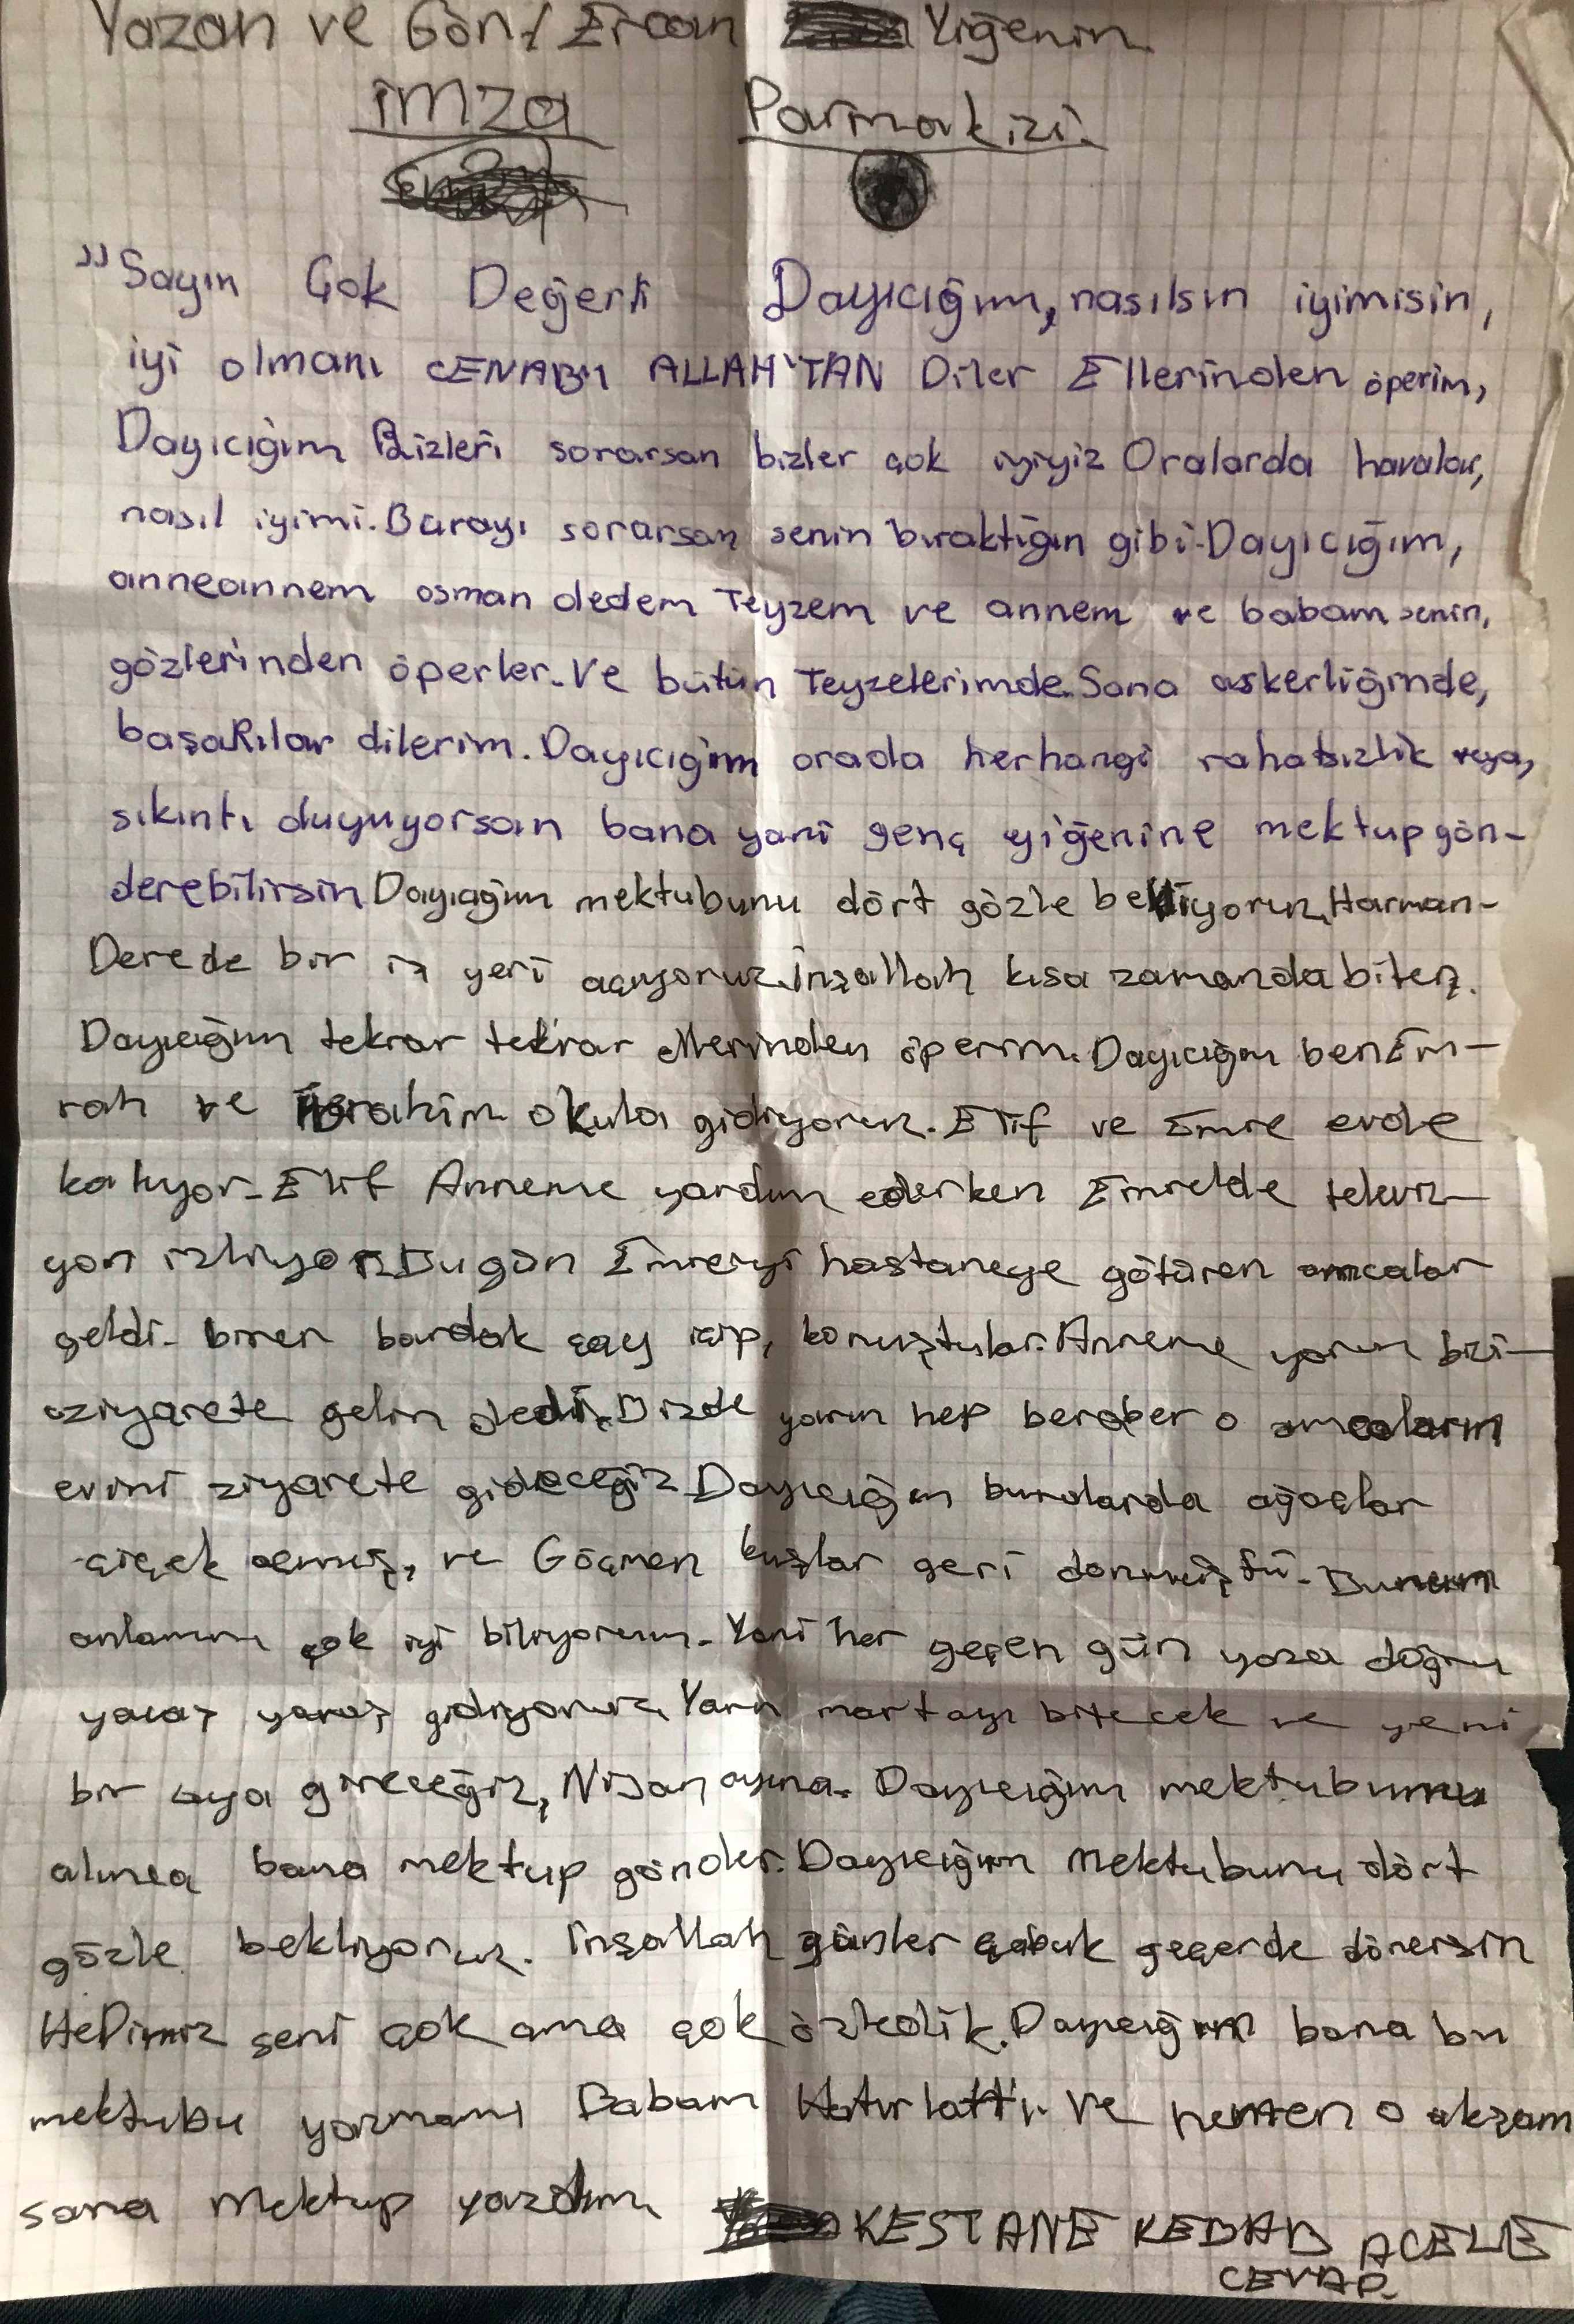 Yazan ve Gön/ Ercan Yiğenin.
imza Parmak izi.
"Sayın Çok Değerli Dayıcığım, nasılsın iyimisin,
iyi olmanı CENABI ALLAH'TAN Diler Ellerinden öperim,
Dayıcığım Bizleri sorarsan bizler çok iyiyiz Oralarda havalar,
nasıl iyimi. Burayı sorarsan senin bıraktığın gibi. Dayıcığım,
anneannem osman dedem Teyzem ve annem ve babam senin,
gözlerinden öperler. Ve bütün Teyzelerimde. Sana askerliğinde,
başaRılar dilerim. Dayıcığım orada herhangi rahatsızlık veya,
sıkıntı duyuyorsan bana yani genç yiğenine mektup gön-
derebilirsin Dayıcığım mektubunu dört gözle bekliyoruz, Harman-
Derede bir iş yeri açıyoruz. İnşallah kısa zamanda biter.
Dayıcığım tekrar tekrar ellerinden öperim. Dayıcığım ben Em-
rah ve İbrahim okula gidiyoruz. Elif ve Emre evde
kalıyor. Elif Anneme yardım ederken Emrede televiz-
yon izliyor. Bugün Emreyi hastaneye götüren amcalar
geldi. birer bardak çay içip, konuştular. Anneme yarın bizi-
ziyarete gelin dedi. Bizde yarın hep beraber o amcaların
evini ziyarete gideceğiz. Dayıcığım buralarda ağaçlar
çiçek açmış, ve Göçmen kuşlar geri dönmüştü. Bunun
anlamını çok iyi biliyorum. Yani her geçen gün yaza doğru
yavaş yavaş gidiyoruz. Yarın mart ayı bitecek ve yeni
bir aya gireceğiz, Nisan ayına. Dayıcığım mektubumu
alınca bana mektup gönder. Dayıcığım mektubunu dört
gözle bekliyoruz. İnşallah günler çabuk geçerde dönersin
HePimiz seni çok ama çok özledik. Dayıcığım bana bu
mektubu yazmamı Babam Hatırlattı. Ve hemen o akşam
sana mektup yazdım. KESTANE KEBAB ACELE
CEVAP.